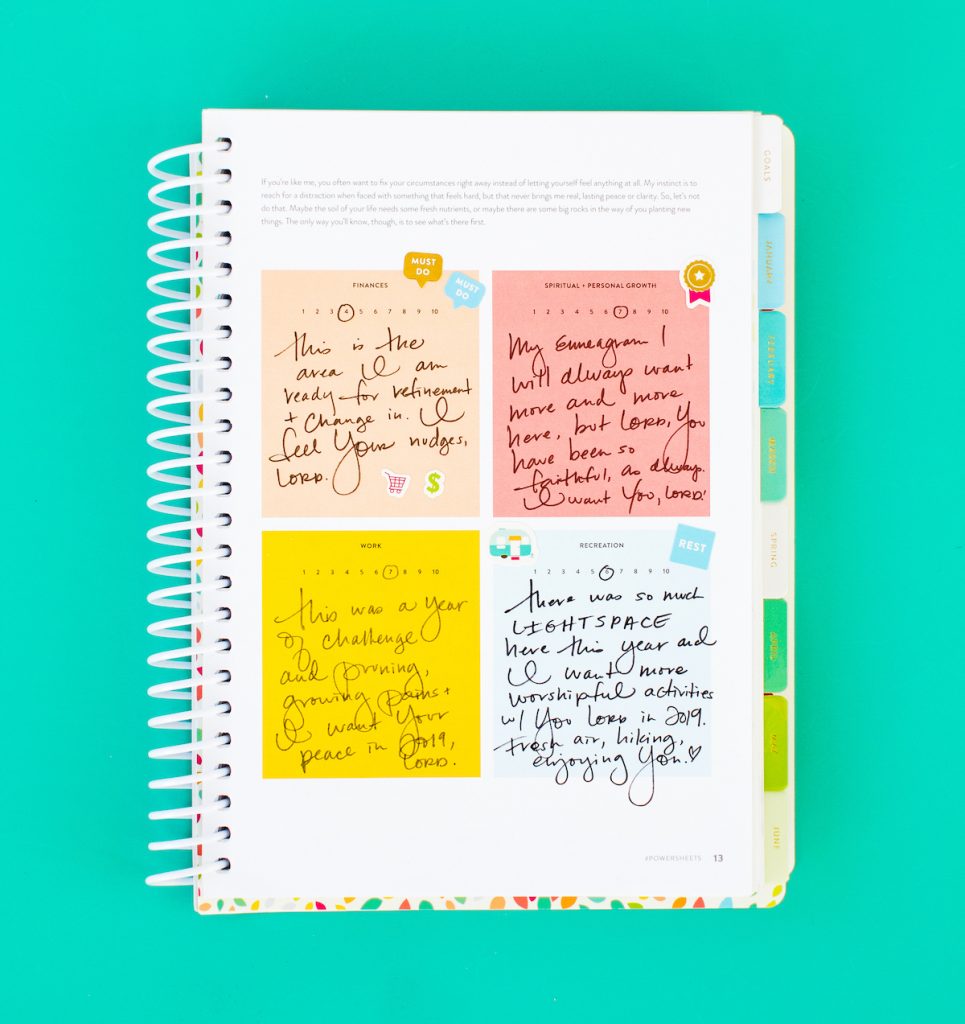 If you're like me, you often want to fix your circumstances right away instead of letting yourself feel anything at all. My instinct is to
reach for a distraction when faced with something that feels hard, but that never brings me real, lasting peace or clarity. So, let's not
do that. Maybe the soil of your life needs some fresh nutrients, or maybe there are some big rocks in the way of you planting new
things. The only way you'll know, though, is to see what's there first.
MUST
DO
MUST
DO
FINANCES
1 2 3 4 5 6 7 8 9 10
This is the
area I am
ready for refinement
+ change in. I
feel Your nudges,
LORD.
$
SPIRITUAL + PERSONAL GROWTH
1 2 3 4 5 6 7 8 9 10
My enneagram 1
will always want
more and more
here, but LORD, You
have been so
faithful, as always.
I want You, LORD!
WORK
1 2 3 4 5 6 7 8 9 10
This was a year
of challenge
and pruning,
growing pains +
I want Your
peace in 2019,
LORD.
RECREATION
REST
1 2 3 4 5 6 7 8 9 10
There was so much
LIGHTSPACE
here this year and
I want more
worshipful activities
w/ You LORD in 2019.
Fresh air, hiking,
enjoying You.♡
#POWERSHEETS 13
GOALS
JANUARY
FEBRUARY
MARCH
SPRING
APRIL
MAY
JUNE